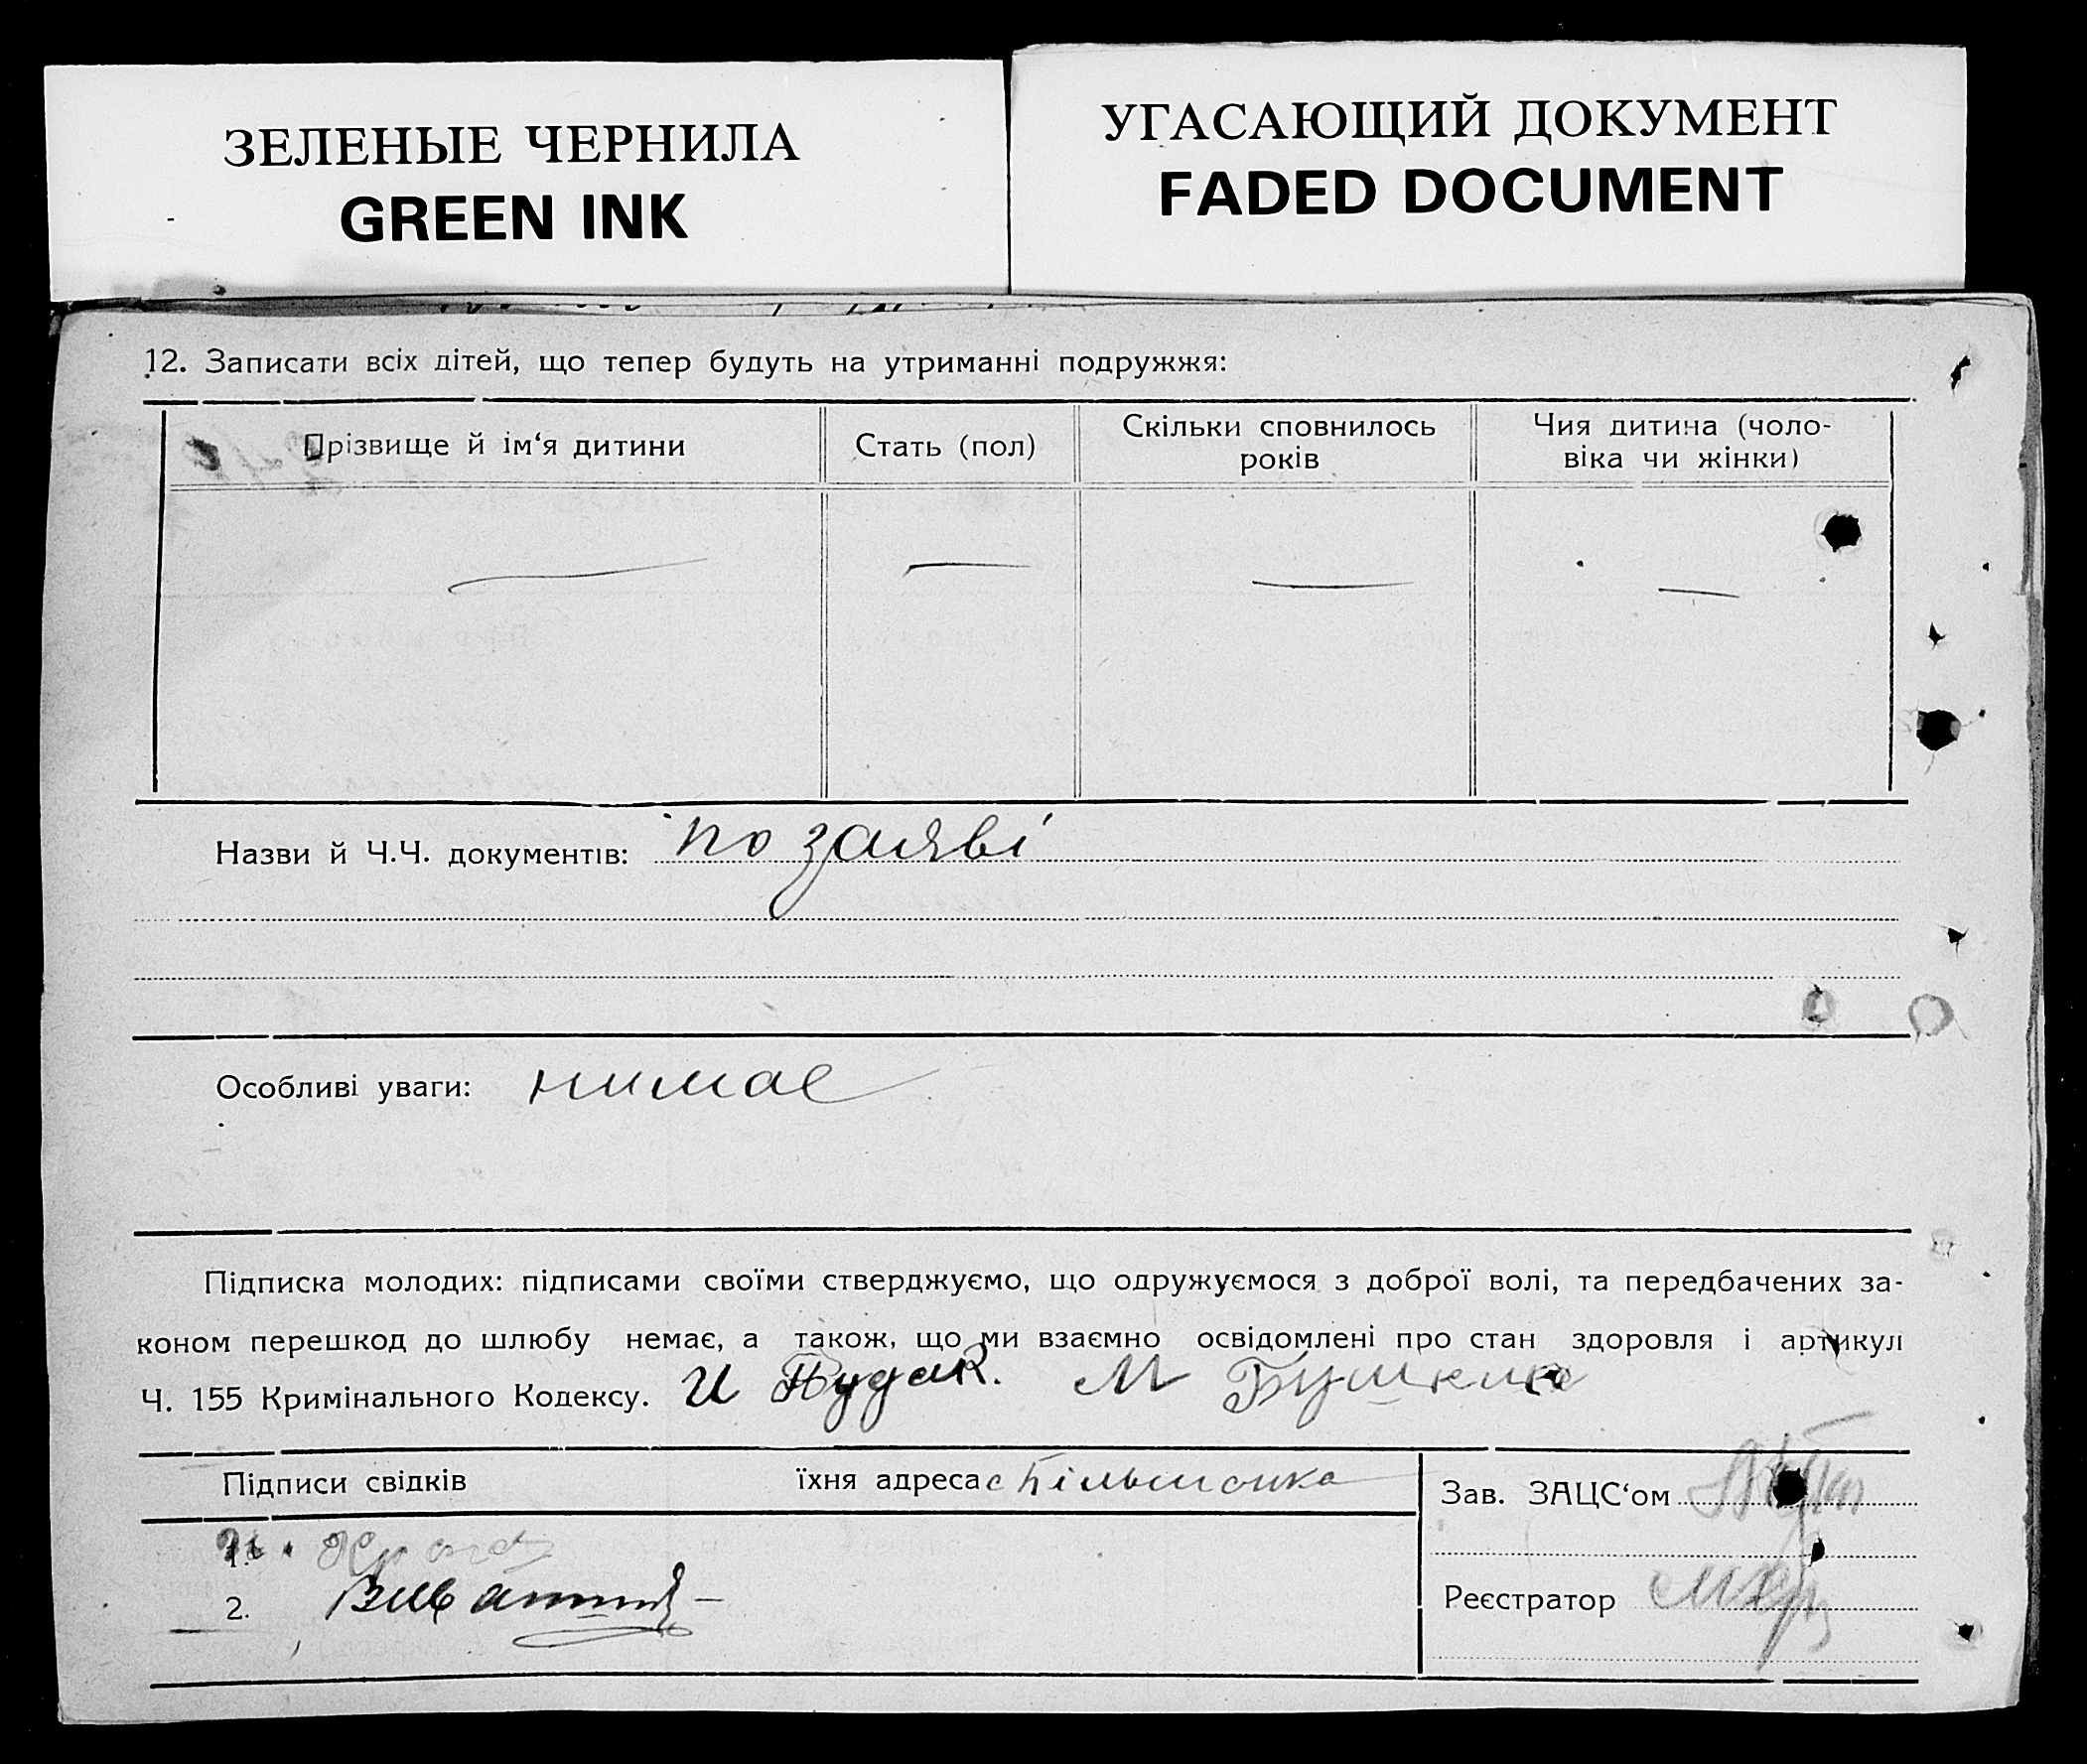 ЗЕЛЕНЫЕ ЧЕРНИЛА
GREEN INK
УГАСАЮЩИЙ ДОКУМЕНТ
FADED DOCUMENT
12. Записати всіх дітей, що тепер будуть на утриманні подружжя:
Прізвище й ім‘я дитини
Стать (пол)
Скільки сповнилось
років
Чия дитина (чоло-
віка чи жінки)
— — — —
Назви й Ч.Ч. документів: по заяві
Особливі уваги: нимае
Підписка молодих: підписами своїми стверджуємо, що одружуємося з доброї волі, та передбачених за-
коном перешкод до шлюбу немає, а також, що ми взаємно освідомлені про стан здоровля і артикул
Ч. 155 Кримінального Кодексу. И М
Підписи свідків
їхня адреса с
Зав. ЗАЦС‘ом
1.
2.
Реєстратор